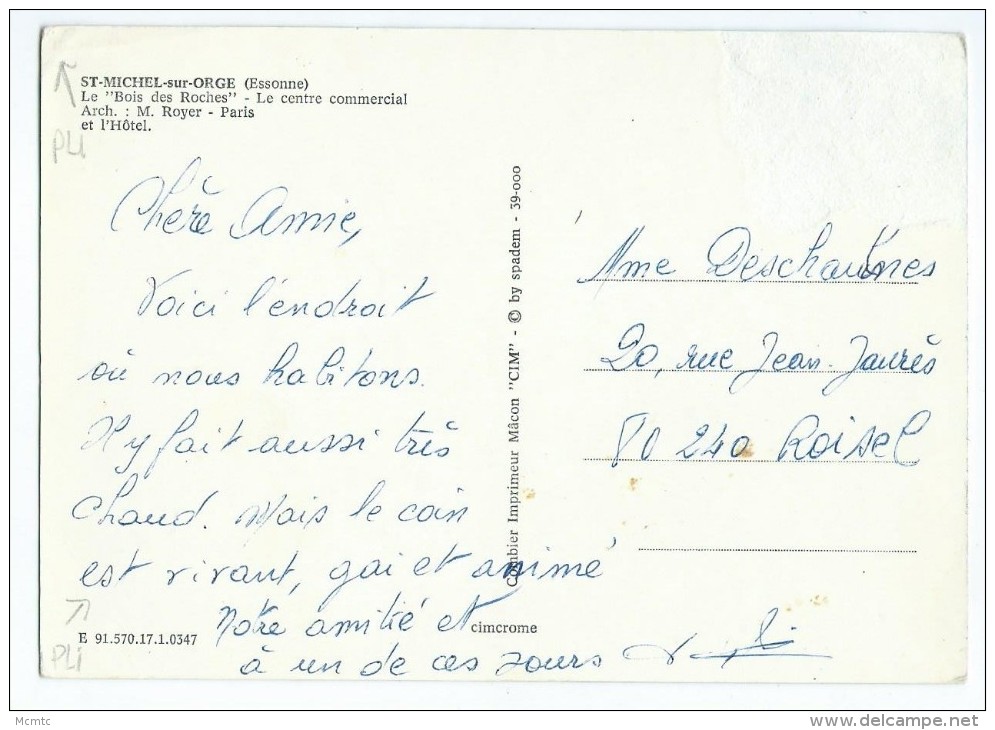 ST-MICHEL-sur-ORGE (Essonne)
Le "Bois des Roches" - Le centre commercial
Arch. : M. Royer - Paris
et l'Hôtel.
PLI
Chère Annie,
Voici l'endroit
où nous habitons.
Il y fait aussi très
chaud. Mais le coin
est vivant, gai et animé
Notre amitié et
à un de ces jours
cimcrome
E 91.570.17.1.0347
PLi
Combier Imprimeur Mâcon "CIM" - © by spadem - 39-000
Mme
20, rue Jean-Jaurès
80 240 Roisel
Mcmtc
delcampe.net